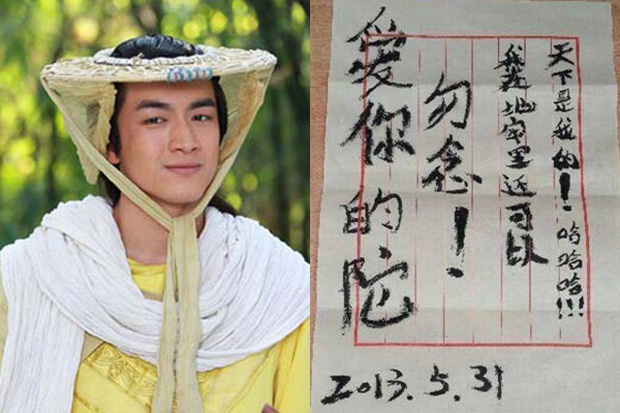 天下是我的！哈哈哈!!!
我在地牢里还可以
勿念！
愛你的陀
2013.5.31